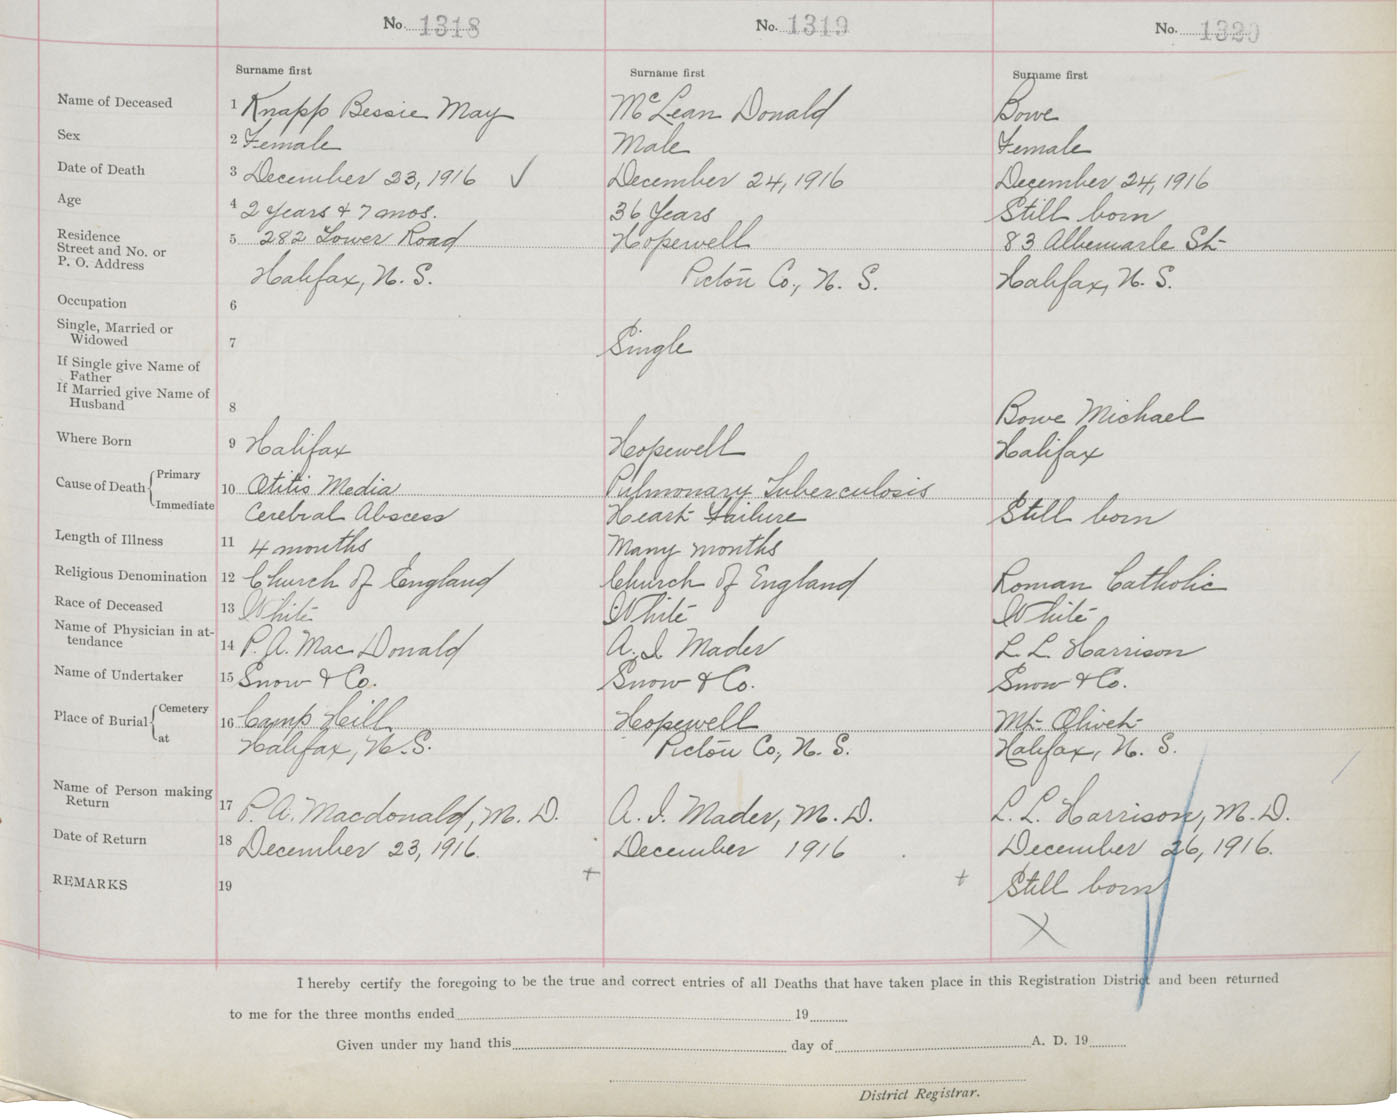 No. 1318 No. 1319 No. 1320
Surname first Surname first Surname first
Name of Deceased 1 Knapp Bessie May McLean Donald Bowe
Sex 2 Female Male Female
Date of Death 3 December 23, 1916 ✓ December 24, 1916 December 24, 1916
Age 4 2 Years & 7 mos. 36 Years Still born
Residence 5 282 Lower Road Hopewell 83 Albemarle St
Street and No. or
P. O. Address Halifax, N. S. Pictou Co., N. S. Halifax, N. S.
Occupation 6
Single, Married or
Widowed 7 Single
If Single give Name of
Father
If Married give Name of
Husband 8 Bowe Michael
Where Born 9 Halifax Hopewell Halifax
Cause of Death { Primary 10 Otitis Media Pulmonary Tuberculosis
Immediate Cerebral Abscess Heart Failure Still born
Length of Illness 11 4 months Many months
Religious Denomination 12 Church of England Church of England Roman Catholic
Race of Deceased 13 White White White
Name of Physician in at-
tendance 14 P. A. MacDonald A. I. Mader L. L. Harrison
Name of Undertaker 15 Snow & Co. Snow & Co. Snow & Co.
Place of Burial { Cemetery 16 Camp Hill Hopewell Mt. Olivet
at Halifax, N. S. Pictou Co., N. S. Halifax, N. S.
Name of Person making
Return 17 P. A. Macdonald, M. D. A. I. Mader, M. D. L. L. Harrison, M. D.
Date of Return 18 December 23, 1916. December 1916 December 26, 1916.
REMARKS 19 + + Still born
X
I hereby certify the foregoing to be the true and correct entries of all Deaths that have taken place in this Registration District and been returned
to me for the three months ended 19
Given under my hand this day of A. D. 19
District Registrar.